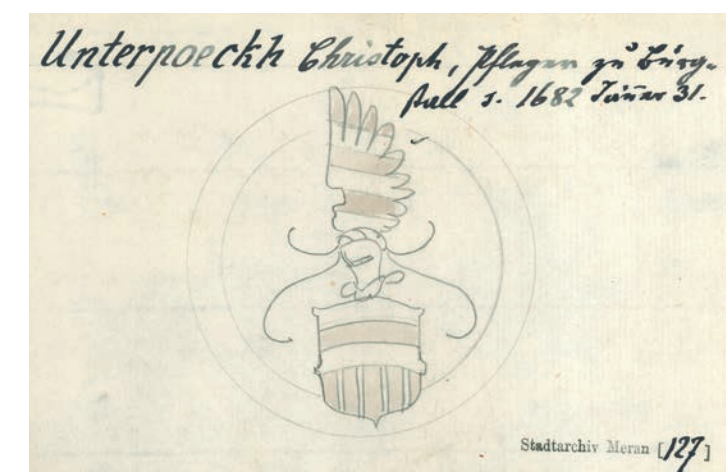 Unterpoeckh Christoph, Pfleger zu Burg-
stall s. 1682 Jänner 31.
Stadtarchiv Meran [127]